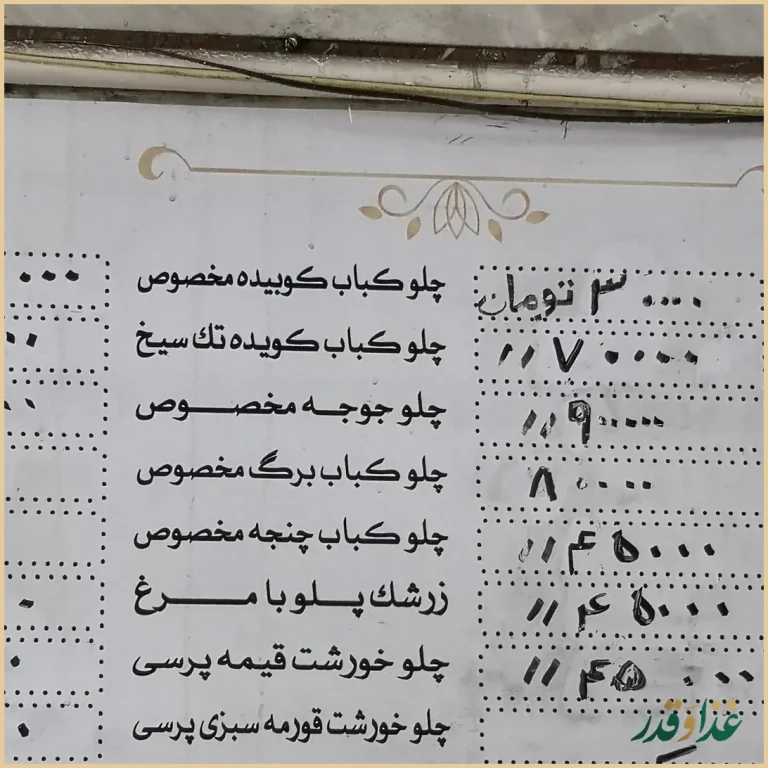 چلو کباب کوبیده مخصوص
۳۰۰۰۰ تومان
چلو کباب کوبیده تك سیخ
۷۰۰۰۰ //
چلو جوجه مخصوص
۹۰۰۰۰ //
چلو کباب برگ مخصوص
۸۰۰۰۰
چلو کباب چنجه مخصوص
۴۵۰۰۰ //
زرشك پلو با مرغ
۴۵۰۰۰ //
چلو خورشت قیمه پرسی
۴۵۰۰۰ //
چلو خورشت قورمه سبزی پرسی
غذا و قدر